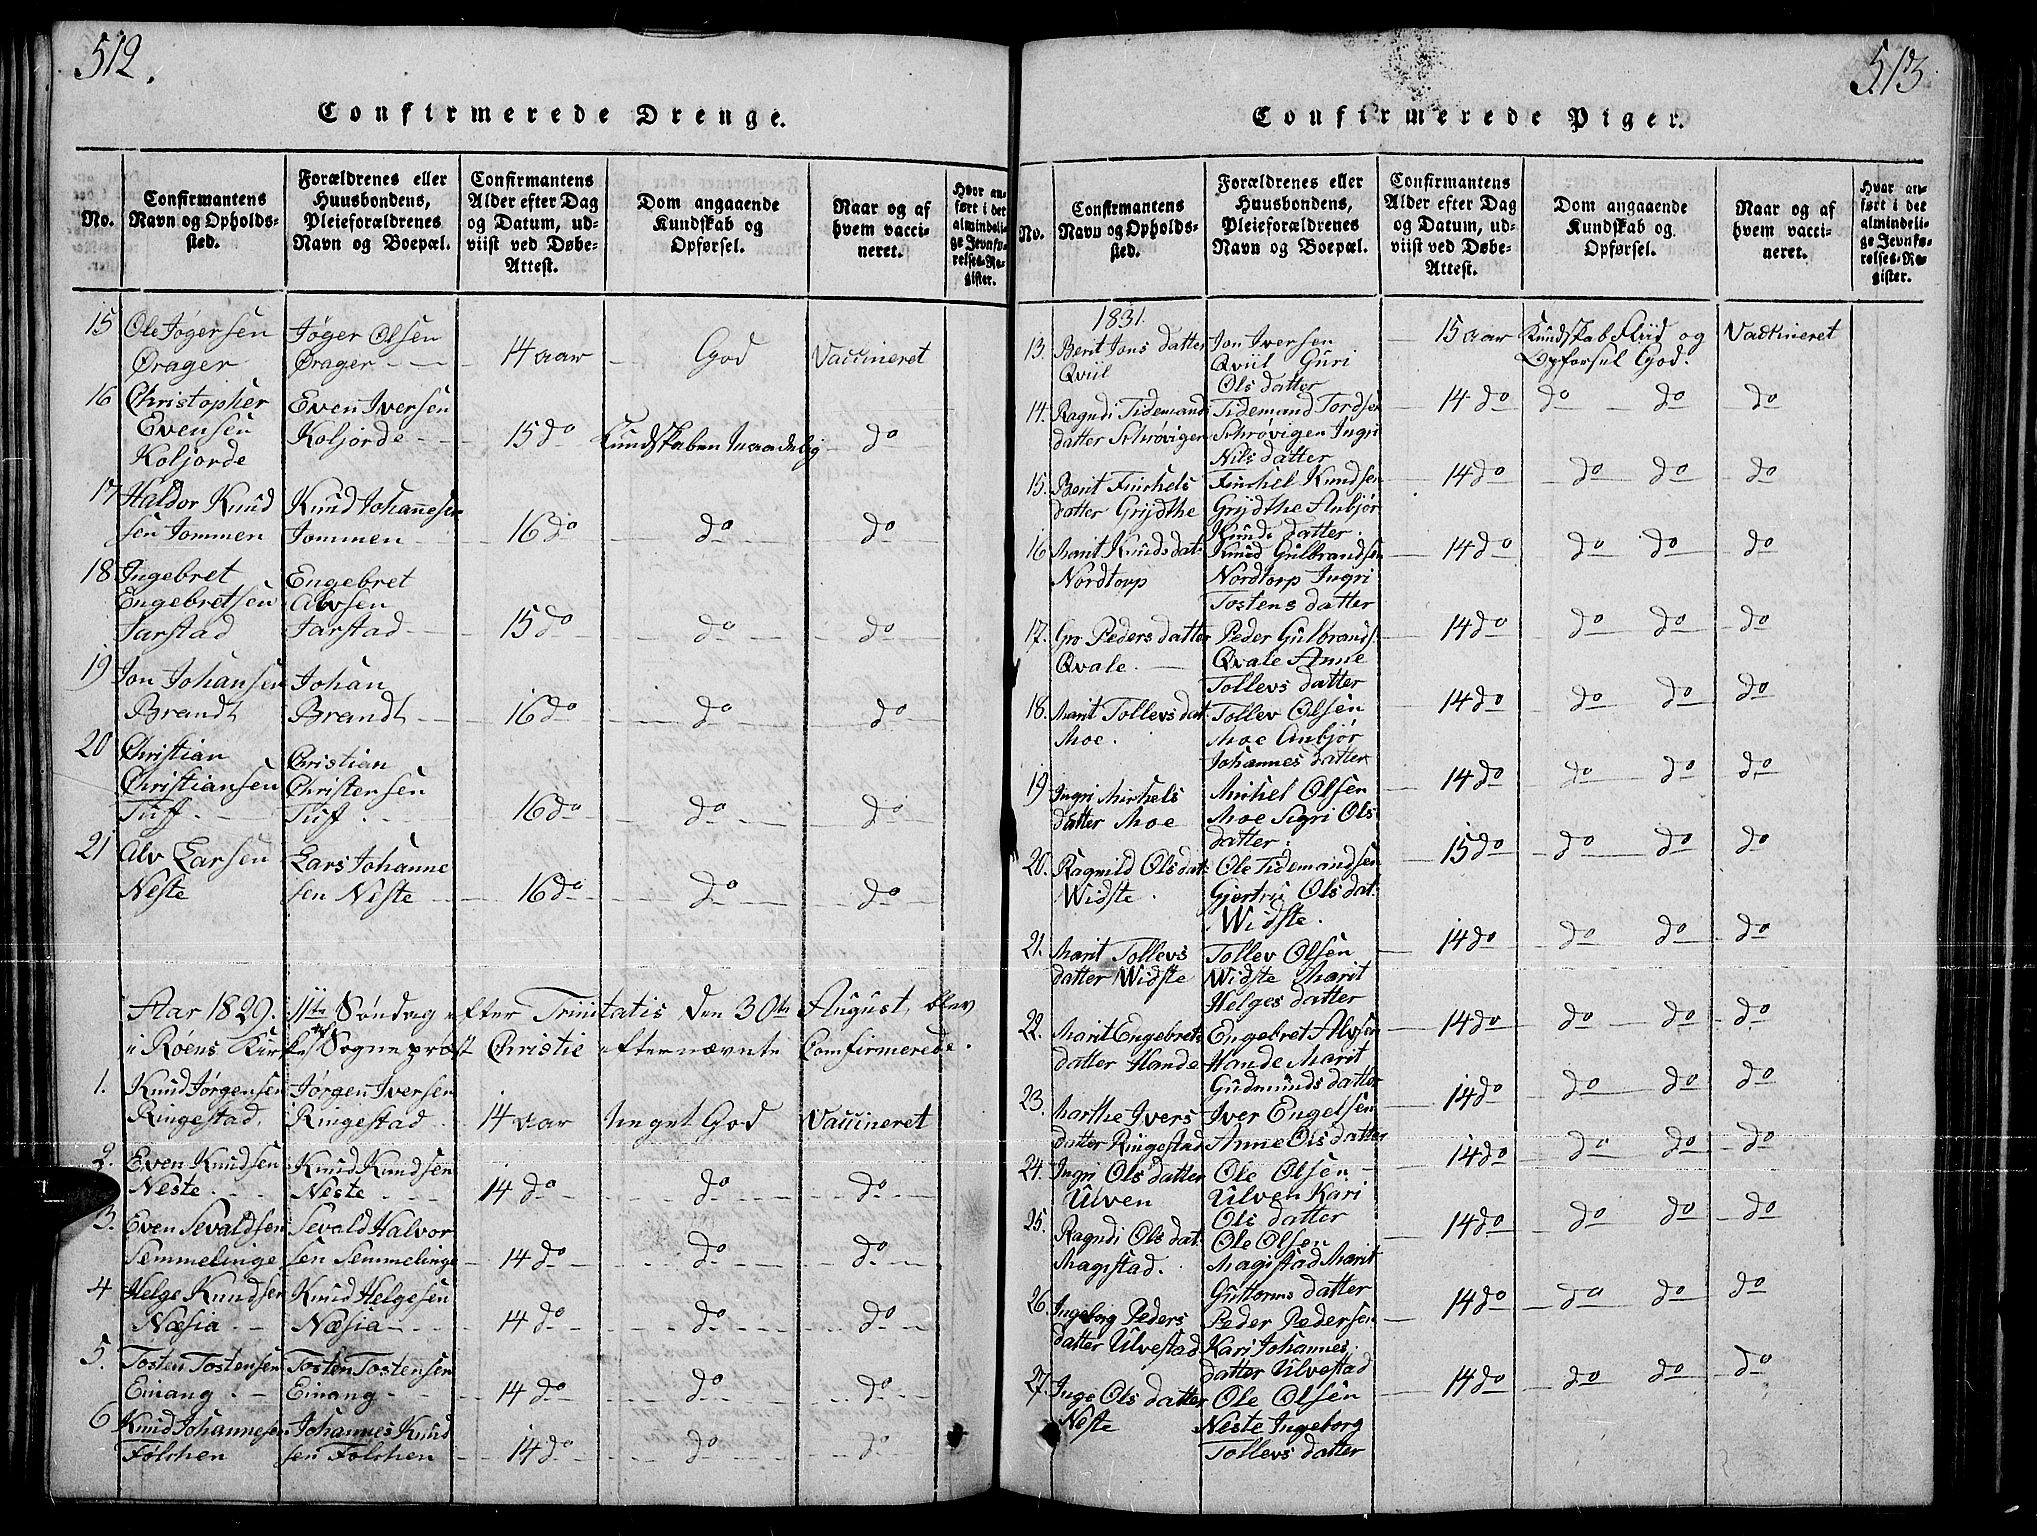 512.
Confirmerede Drenge.
No.
Confirmantens
Navn og Opholds-
sted.
Forældrenes eller
Huusbondens,
Pleieforældrenes
Navn og Boepæl.
Confirmantens
Alder efter Dag
og Datum, ud-
viist ved Døbe-
Attest.
Dom angaaende
Kundskab og
Opførsel.
Naar og af
hvem vacci-
neret.
Hvor an-
ført i det
almindeli-
ge Jevnfø-
relses-Re-
gister.
15 Ole Jøgersen Jøger Olsen
Ørager Ørager 14 aar God Vaccineret
16 Christopher Even Iversen
Evensen Koljorde 15 do Kundskaben maadelig do
Koljorde
17 Haldor Knud Knud Johannesen
sen Jommen Jommen 16 do do do
18 Ingebret Engebret
Engebretsen Alvsen
Jarstad Jarstad 15 do do do
19 Jon Johansen Johan
Brandt Brandt 16 do do do
20 Christian Christian
Christiansen Christensen
Tuf. Tuf. 16 do do do
21 Alv Larsen Lars Johanne
Neste sen Neste 16 do do do
Aar 1829. 11te Søndag efter Trinitatis den 30te August, blev
i Røens Kirke af Sognepræst Christie efternævnte Comfirmerede.
1. Knud Jørgensen Jørgen Iversen
Ringestad. Ringestad. 14 aar meget God Vaccineret
2. Even Knudsen Knud Knudsen
Neste Neste 14 do do do
3. Even Sevaldsen Sevald Halvor
Semmelinge sen Semmelinge 14 do do do
4 Helge Knudsen Knud Helgesen
Næsia Næsia 14 do do do
5. Tosten Tostensen Tosten Tostensen
Einang Einang 14 do do do
6 Knud Johannesen Johannes Knud
Følchen sen Følchen 14 do do do
513
Confirmerede Piger.
No.
Confirmantens
Navn og Opholds-
sted.
Forældrenes eller
Huusbondens,
Pleieforældrenes
Navn og Boepæl.
Confirmantens
Alder efter Dag
og Datum, ud-
viist ved Døbe-
Attest.
Dom angaaende
Kundskab og
Opførsel.
Naar og af
hvem vacci-
neret.
Hvor an-
ført i det
almindeli-
ge Jevnfø-
relses-Re-
gister.
1831.
13. Berit Jons datter Jon Iversen 15 aar Kundskab Fliid og Vaccineret
Qviil Qviil Guri Opførsel God.
Ols datter
14. Ragndi Tidemands Tidemand Tordsen 14 do do do do
datter Schrøvigen Schrøvigen Ingri
Nils datter
15. Berit Finchels Finchel Knudsen 14 do do do do
datter Grijdthe Grijdthe Anbjør
Knuds datter.
16 Marit Knuds dat Knud Gulbrandsen 14 do do do do
Nordtorp Nordtorp Ingri
Tostens datter
17. Gro Peders datter Peder Gulbrands. 14 do do do do
Qvale. Qvale Anne
Tollevs datter
18. Marit Tollevs dat. Tollev Olsen 14 do do do do
Moe. Moe Anbjør
Johannes datter
19 Ingri Michels Michel Olsen 14 do do do do
datter Moe Moe Sigri Ols
datter.
20. Ragnild Ols dat. Ole Tidemandsen 15 do do do do
Widste. Gjertru Ols dat.
Widste.
21. Marit Tollevs Tollev Olsen 14 do do do do
datter Widste Widste Marit
Helges datter
22. Marit Engebrets Engebret Alvsen 14 do do do do
datter Hande Hande Marit
Gudmunds datter
23. Marthe Ivers Iver Engelsen 14 do do do do
datter Ringestad Anne Ols datter
24. Ingri Ols datter Ole Olsen 14 do do do do
Ulven Ulven Kari
Ols datter
25. Ragndi Ols dat. Ole Olsen 14 do do do do
Magistad. Magistad Marit
Guttorms datter
26. Ingeborg Peders Peder Pedersen 14 do do do do
datter Ulvestad Kari Johannes
datter Ulvestad
27. Inge Ols datter Ole Olsen 14 do do do do
Neste Neste Ingeborg
Tollevs datter